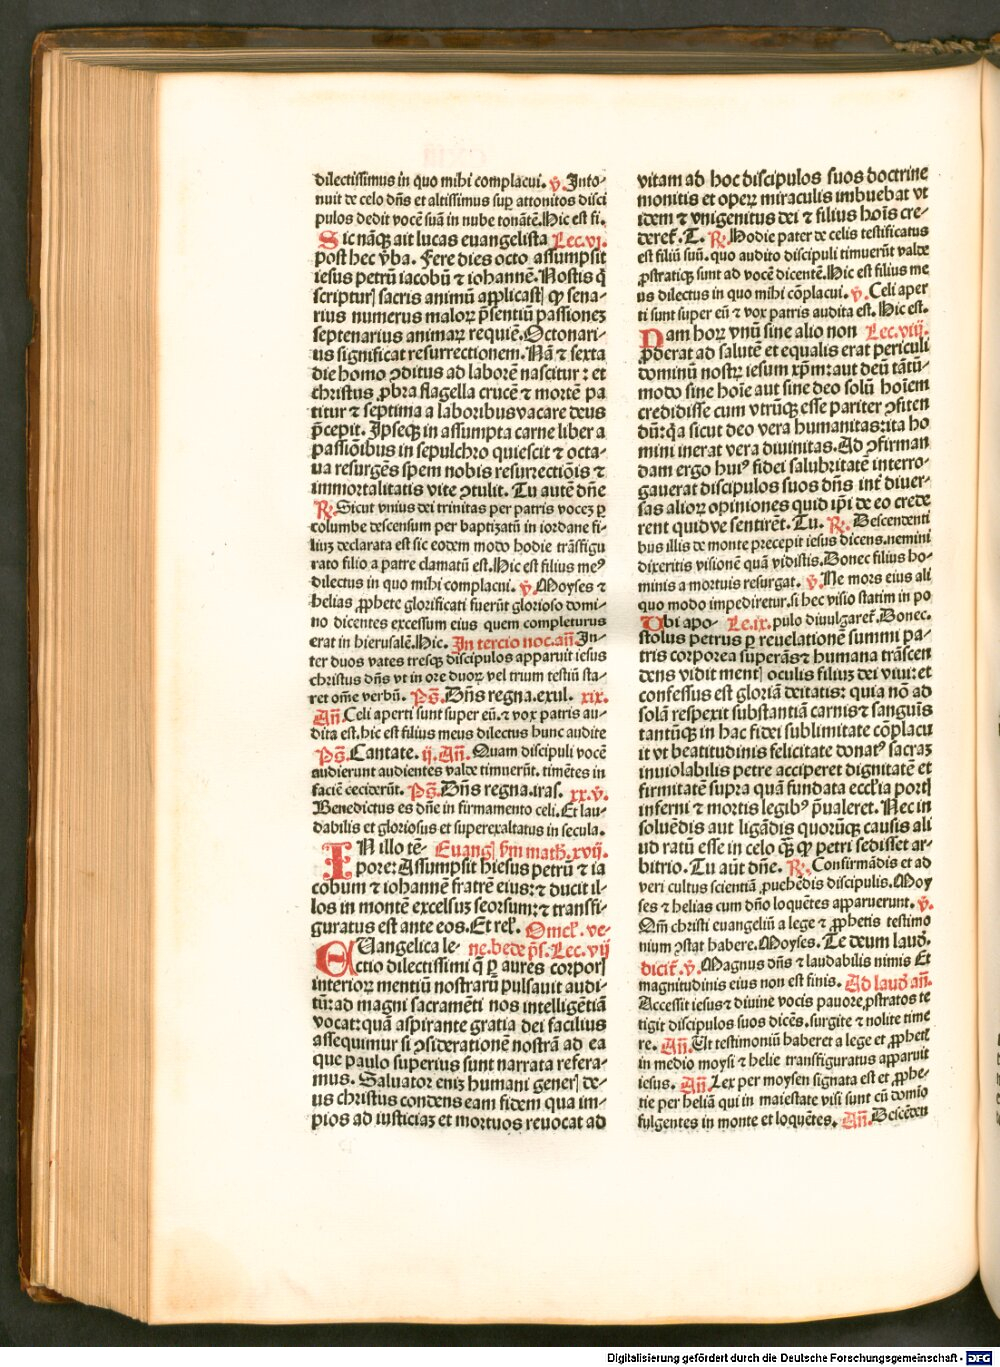 dilectissimus in quo mihi complacui. ℣. Into-
nuit de celo dñs et altissimus suꝑ attonitos disci
pulos dedit vocē suā in nube tonātē. Hic est fi.
Sic nãqꝫ ait lucas euangelista Lec.vj.
post hec v̄ba. Fere dies octo assumpsit
iesus petrū iacobū ⁊ iohannē. Nostis q̄
scripturꝭ sacris animū applicastꝭ ꝙ sena-
rius numerus maloꝝ p̄sentiū passionez
septenarius animaꝝ requiē. Octonari-
us significat resurrectionem. Nā ⁊ sexta
die homo ꝯditus ad laborē nascitur: et
christus ꝓbra flagella crucē ⁊ mortē pa
titur ⁊ septima a laboribus vacare deus
p̄cepit. Ipseqꝫ in assumpta carne liber a
passiōibus in sepulchro quiescit ⁊ octa-
ua resurgēs spem nobis resurrectiōis ⁊
immortalitatis vite ꝯtulit. Tu autē dñe
℟. Sicut vnius dei trinitas per patris vocez ꝑ
columbe descensum per baptizatū in iordane fi-
liuz declarata est sic eodem modo hodie trāsfigu
rato filio a patre clamatū est. Hic est filius meꝰ
dilectus in quo mihi complacui. ℣. Moyses ⁊
helias ꝓphete glorificati fuerūt glorioso domi-
no dicentes excessum eius quem completurus
erat in hierusalē. Hic. In tercio noc. añ. In-
ter duos vates tresqꝫ discipulos apparuit iesus
christus dñs vt in ore duoꝝ vel trium testiū sta-
ret om̄e verbū. Pš. Dñs regna. exul. xix.
Añ. Celi aperti sunt super eū. ⁊ vox patris au-
dita est. hic est filius meus dilectus hunc audite
Pš. Cantate. ij. Añ. Quam discipuli vocē
audierunt audientes valde timuerūt. timētes in
faciē ceciderūt. Pš. Dñs regna. iras. xx. ℣.
Benedictus es dñe in firmamento celi. Et lau-
dabilis et gloriosus et superexaltatus in secula.
IN illo tē- Euangꝭ s̄m math. xvij.
pore: Assumpsit hiesus petrū ⁊ ia
cobum ⁊ iohannē fratrē eius: ⁊ ducit il-
los in montē excelsuz seorsum: ⁊ transfi-
guratus est ante eos. Et rel. Omel. ve-
EUangelica le- ne. bede p̄s. Lec. vij
ctio dilectissimi q̄ ꝑ aures corporꝭ
interioꝝ mentiū nostrarū pulsauit audi-
tū: ad magni sacramēti nos intelligētiā
vocat: quā aspirante gratia dei facilius
assequimur si ꝯsiderationē nostrā ad ea
que paulo superius sunt narrata refera-
mus. Saluator eniz humani generꝭ de-
us christus condens eam fidem qua im-
pios ad iusticiaz et mortuos reuocat ad
vitam ad hoc discipulos suos doctrine
monitis et opeꝝ miraculis imbuebat vt
idem ⁊ vnigenitus dei ⁊ filius hoīs cre-
deret. T. ℟. Hodie pater de celis testificatus
est filiū suū. quo audito discipuli timuerūt valde
ꝓstratiqꝫ sunt ad vocē dicentē. Hic est filius me
us dilectus in quo mihi cōplacui. ℣. Celi aper
ti sunt super eū ⁊ vox patris audita est. Hic est.
Nam hoꝝ vnū sine alio non Lec. viij.
ꝓderat ad salutē et equalis erat periculi
dominū nostꝝ iesum xp̄m: aut deū tātū-
modo sine hoīe aut sine deo solū hoīem
credidisse cum vtrūqꝫ esse pariter ꝯfiten
dū: q̄a sicut deo vera humanitas: ita ho
mini inerat vera diuinitas. Ad ꝯfirman
dam ergo huiꝰ fidei salubritatē interro-
gauerat discipulos suos dñs int̄ diuer-
sas alioꝝ opiniones quid ip̄i de eo crede
rent quid ve sentirēt. Tu. ℟. Descendenti
bus illis de monte precepit iesus dicens. nemini
dixeritis visionē quā vidistis. Donec filius ho-
minis a mortuis resurgat. ℣. Ne mors eius ali
quo modo impediretur. si hec visio statim in po
Ubi apo- Le. ix. pulo diuulgaret. Donec.
stolus petrus ꝑ reuelationē summi pa-
tris corporea superās ⁊ humana trāscen
dens vidit mentꝭ oculis filiuz dei viui: et
confessus est gloriā deitatis: quia nō ad
solā respexit substantiā carnis ⁊ sanguis
tantūqꝫ in hac fidei sublimitate cōplacu
it vt beatitudinis felicitate donatꝰ sacraz
inuiolabilis petre acciperet dignitatē et
firmitatē supra quā fundata eccl'ia portꝭ
inferni ⁊ mortis legibꝰ p̄ualeret. Nec in
soluēdis aut ligādis quorūqꝫ causis ali
ud ratū esse in celo q̄ꝫ ꝙ petri sedisset ar-
bitrio. Tu aūt dñe. ℟. Confirmādis et ad
veri cultus scientiā ꝓuehēdis discipulis. Moy
ses ⁊ helias cum dño loquētes apparuerunt. ℣.
Qm̄ christi euangeliū a lege ⁊ ꝓphetis testimo
nium ꝯstat habere. Moyses. Te deum laud.
dicit. ℣. Magnus dñs ⁊ laudabilis nimis Et
magnitudinis eius non est finis. Ad laud añ.
Accessit iesus ⁊ diuine vocis pauore ꝓstratos te
tigit discipulos suos dicēs. surgite ⁊ nolite time
re. Añ. Ut testimoniū haberet a lege et ꝓphetꝭ
in medio moysi ⁊ helie transfiguratus apparuit
iesus. Añ. Lex per moysen signata est et ꝓphe-
tie per heliā qui in maiestate visi sunt cū domīo
fulgentes in monte et loquētes. Añ. Descēden
Digitalisierung gefördert durch die Deutsche Forschungsgemeinschaft - DFG